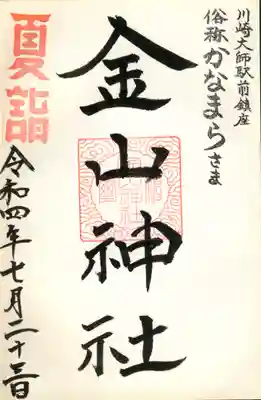 川崎大師駅前鎮座
俗称かなまらさま
金山神社
夏詣
令和四年七月二十三日